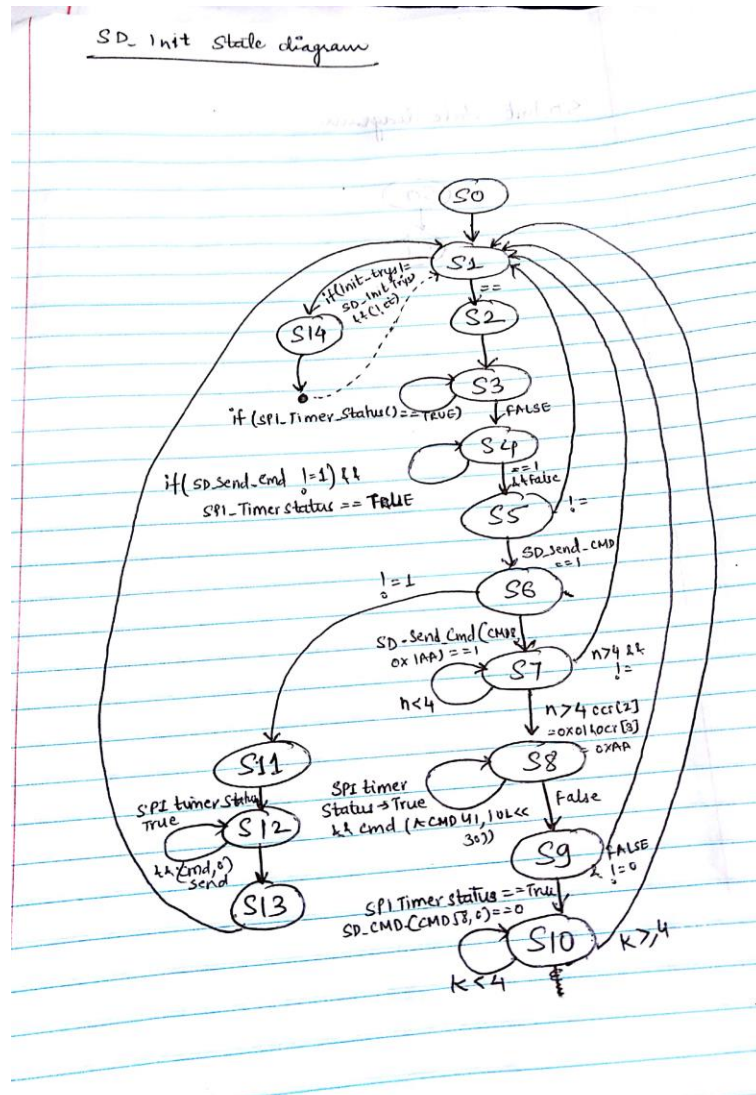 SD_Init State diagram
S0
S1
if(Init_trys!=
SD_Init_Trys
&& (!ct)
==
S14
S2
S3
if (SPI_Timer_Status()==TRUE)
FALSE
S4
if(SD_Send_Cmd !=1) &&
SPI_Timerstatus == TRUE
==1
&&False
S5
!=
SD_Send_CMD
==1
S6
!=1
SD_Send_Cmd(CMD8,
0x1AA)==1
S7
n<4
n>4 &&
!=
n>4 ocr[2]
=0x01&ocr[3]
=0xAA
S11
S8
SPI timer
Status→True
&& cmd (ACMD41, 1UL<<
30))
False
SPI timer Status
True
S12
&&(cmd,0)
send
S9
FALSE
& !=0
S13
SPI Timer status ==True
SD_CMD_(CMD58,0)==0
S10
K<4
K>,4